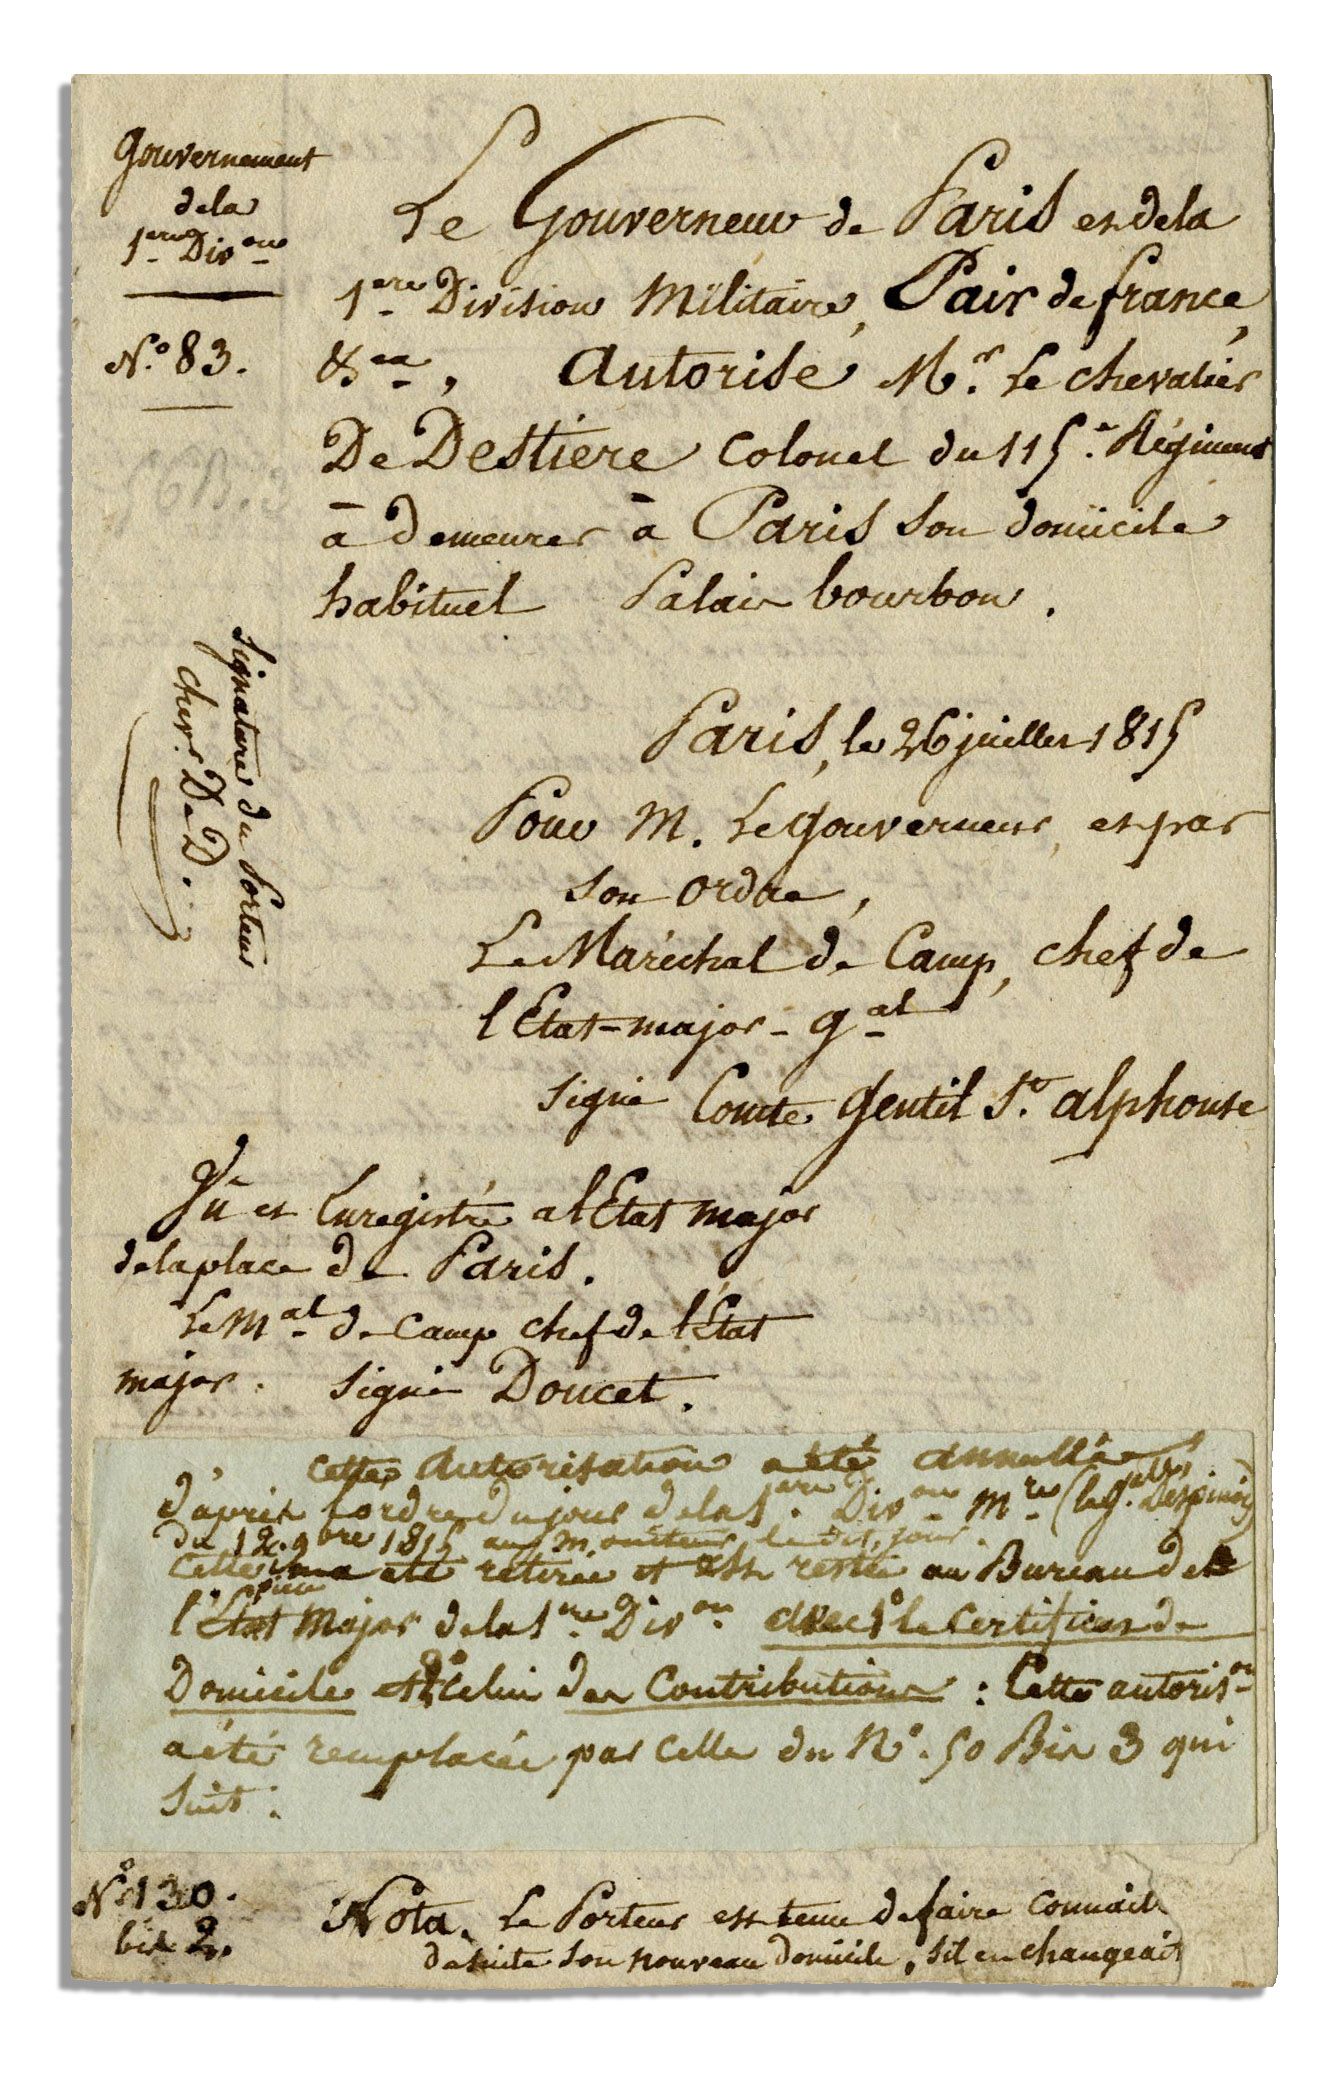 Gouvernement
de la
1ere Divon
N.o 83.
Le Gouverneur de Paris et de la
1ere Division Militaire, Pair de france,
&aa, Autorise Mr. Le chevalier
De Destiere Colonel du 115.e Régiment
à demeurer à Paris son domicile
habituel Palais bourbon.
Signature du Porteur
chev.r De D.
Paris, le 26 juillet 1815
Pour M. Le gouverneur, et par
son ordre,
Le Maréchal de Camp, chef de
l'Etat-major-gal
signé Comte Gentil St. alphonse
Vû et Enregistré a l'Etat major
de la place de Paris.
Le Mal de Camp chef de l'Etat
major. signé Doucet.
cette autorisation a été annullée
d'après l'ordre du jour de la 1ere Divon Mre (le gal Despinois)
du 12. 9bre 1815 au moniteur le dit jour.
Cette pièce a été retirée et est restée au Bureau de
l'Etat Major de la 1re Divon avec 1o le Certificat de
Domicile et 2o celui des Contributions : Cette autorison
a été remplacée par celle du No. 50 Bis 3 qui
suit.
No 130.
bis 2.
Nota. Le Porteur est tenu de faire connait
de suite son nouveau domicile, s'il en changeait